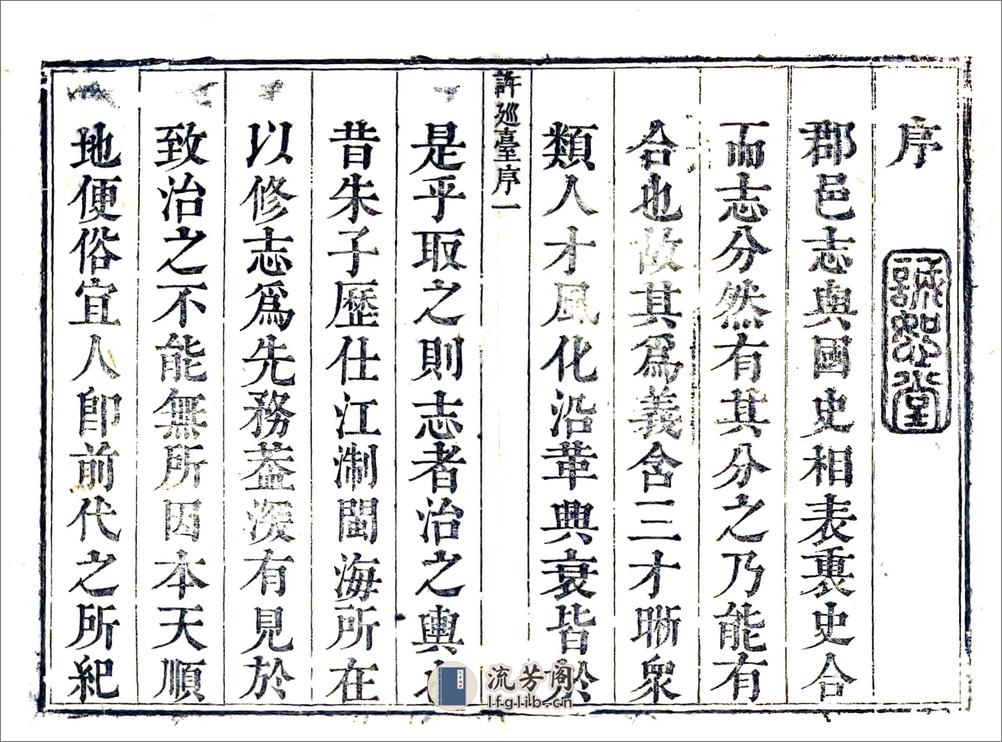 序
誠恕堂
郡邑志與國史相表裏史合
而志分然有其分之乃能有
合也故其爲義含三才晰衆
類人才風化沿革興衰皆於
許廵臺序一
是乎取之則志者治之輿
昔朱子歷仕江淛閩海所在
以修志爲先務葢深有見於
致治之不能無所因本天順
地便俗宜人卽前代之所紀
流芳阁
lfglib.cn